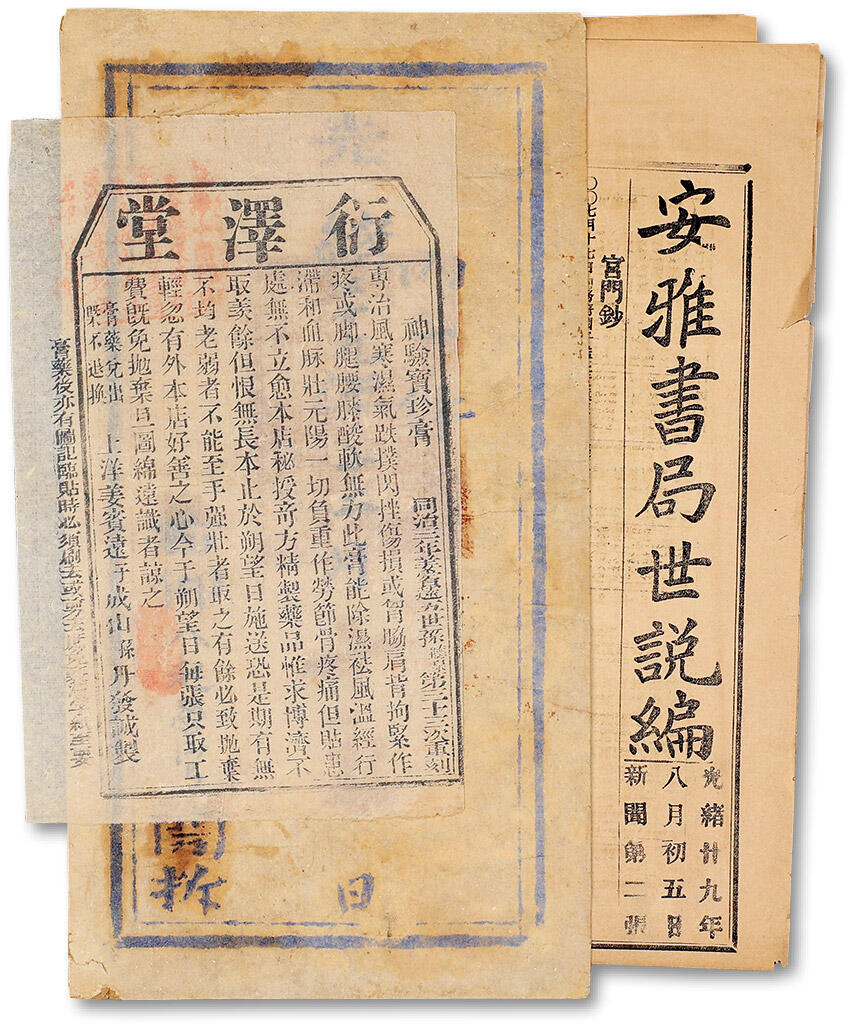 衍澤堂
神驗寶珍膏
同治三年姜賓遠五世孫
第二十三次重刻
專治風寒濕氣跌撲閃挫傷損或臂膓肩背拘緊作
疼或脚腿腰膝酸軟無力此膏能除濕祛風溫經行
滯和血脉壯元陽一切負重作勞節骨疼痛但貼患
處無不立愈本店秘授竒方精製藥品惟求博濟不
取羡餘但恨無長本止於朔望日施送恐是期有無
不均老弱者不能至手强壯者取之有餘必致抛棄
輕忽有外本店好善之心今于朔望日每張只取工
費旣免抛棄且圖綿遠識者諒之
膏藥兌出
槩不退換
上洋姜賓遠子成山孫丹發誠製
膏藥後亦有圖記臨貼時必須
日
安雅書局世説編
光緒廿九年
八月初五日
新聞第二張
宮門鈔